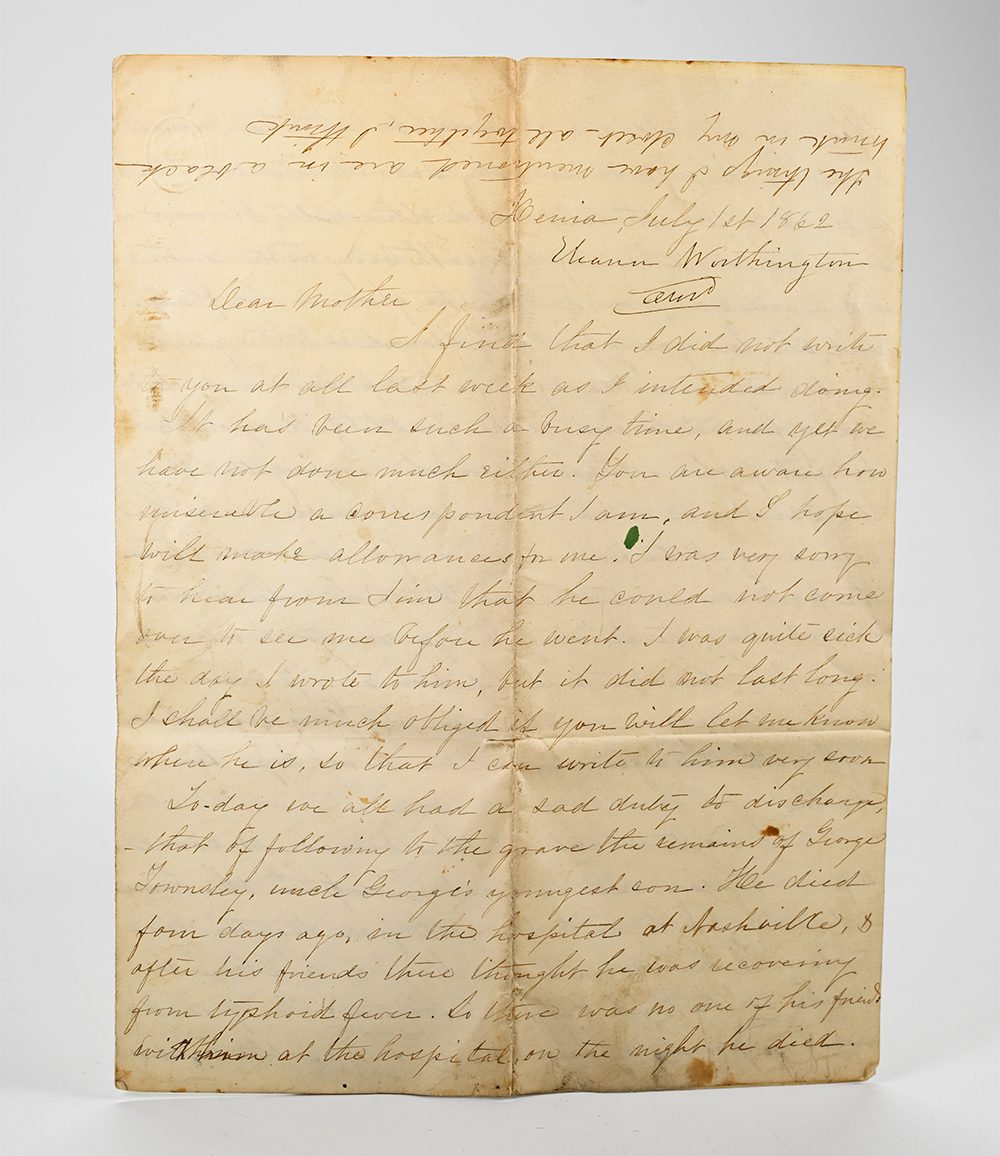 The things I have mentioned are in a black
trunk in my closet all together, I think
Xenia, July 1st 1862
Eleanor Worthington
Dear Mother
I find that I did not write
to you at all last week as I intended doing.
It has been such a busy time, and yet we
have not done much either. You are aware how
miserable a correspondent I am, and I hope
will make allowances for me. I was very sorry
to hear from Jim that he could not come
over to see me before he went. I was quite sick
the day I wrote to him, but it did not last long.
I shall be much obliged if you will let me know
where he is, so that I can write to him very soon
To-day we all had a sad duty to discharge,
- that of following to the grave the remains of George
Townsley, uncle George's youngest son. He died
four days ago, in the hospital at Nashville, &
after his friends there thought he was recovering
from typhoid fever. So there was no one of his friends
with him at the hospital, on the night he died.